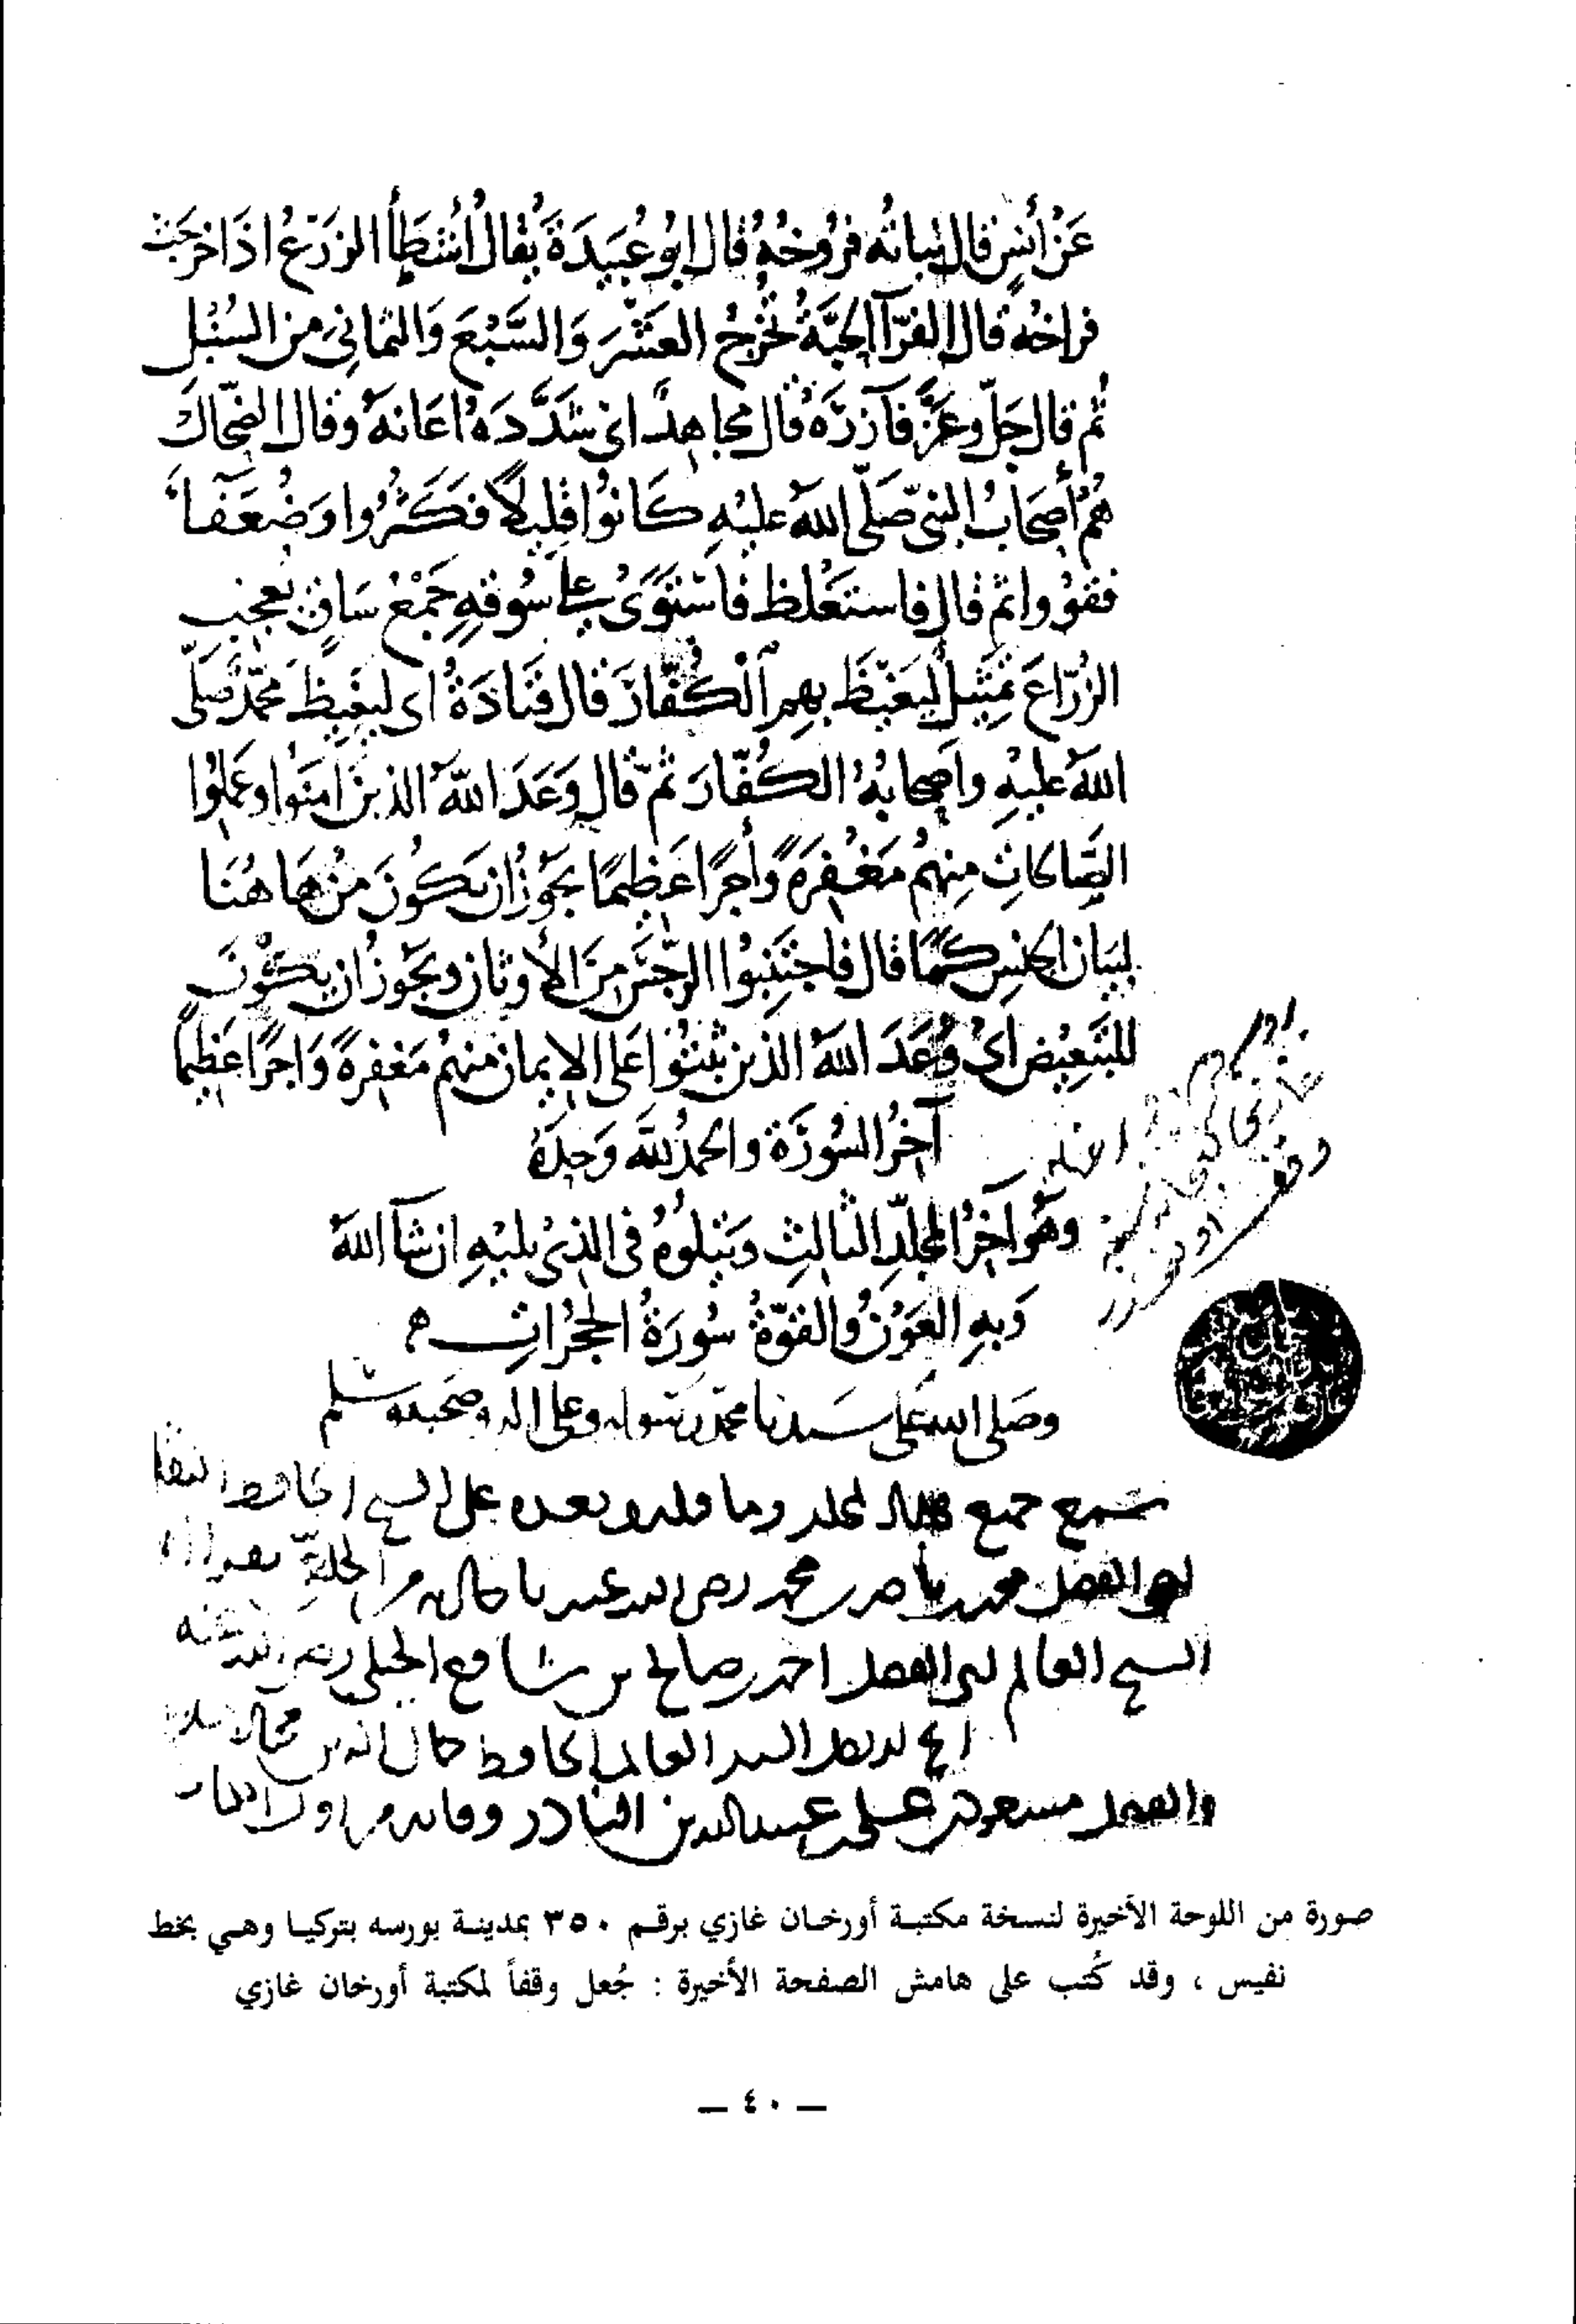 عَنْ أنسٍ قال نباتُه فرُوخُهُ قال ابو عُبَيدَةَ يُقالُ أشطَأ الزرَعُ اذَا خرجَت
فراخُه قال الفرّآ الحبَّةُ تُخرجُ العَشْرَ وَالسَّبْعَ وَالثمانِىَ من السُنْبُلِ
ثم قال جَلّ وعَزّ فآزرَهُ قال مجاهدٌ اى شدَّدَهُ اعَانهُ وقال الضحّاك
هُمْ أصحَابُ النبىّ صَلّى اللهُ عليْهِ كانُوا قليلاً فكَثُرُوا وَضُعَفَاً
فقوُوا ثم قال فاستغْلظ فاستَوَىٰ على سُوقهِ جَمْعُ ساقٍ يعجب
الزُرّاعَ تمثيل ليغيظَ بهم الكُفّارَ قال قتادَةُ اى ليغيظَ محمّدٌ صَلّى
اللهُ عليْهِ وأصحابُهُ الكُفّارَ ثمّ قال وَعَدَ اللهُ الذين آمَنُوا وعَملُوا
الصَّالحاتِ منهُم مَغفِرَةً وأجرًا عَظيمًا يجوُزُ ان يكُونَ مِنْ هَاهُنَا
لبيَان الجنسِ كمَا قال فاجتَنبُوا الرّجسَ مِنَ الأوثان ويجُوزُ ان يكُونَ
للتّبعيْضِ اىْ وَعَدَ اللهُ الذين ثبتُوا عَلى الإيمان منهُم مَغفرَةً وَاجرًا عَظيمًا
آخرُ السُورَة والحمدُ للهِ وَحدَهُ
وهُوَ آخرُ المجلّدِ الثالثِ وَيَتلُوهُ فى الذىْ يليْهِ ان شآ اللهُ
وَبهِ العَوْنُ والقوّةُ سُورَةُ الحُجُرَاتِ
وصَلى الله عَلى سَيدنا محمّد رسوله وعلى اله وصَحبه وسلم
سمع جميع هذا المجلد وما قبله وبعده على الشيخ الحافظ
ابو الفضل محمد بن ناصر بن محمد رضى الله عنه
الشيخ العالم ابى الفضل احمد بن صالح بن شافع الجيلى رضى الله عنه
السيد العالم الحافظ
والفضل مسعود بن على بن عبيد الله بن النادر
صورة من اللوحة الأخيرة لنسخة مكتبة أورخان غازي برقم ٣٥٠ بمدينة بورسه بتركيا وهي بخط
نفيس ، وقد كُتب على هامش الصفحة الأخيرة : جُعل وقفاً لمكتبة أورخان غازي
— ٤٠ —